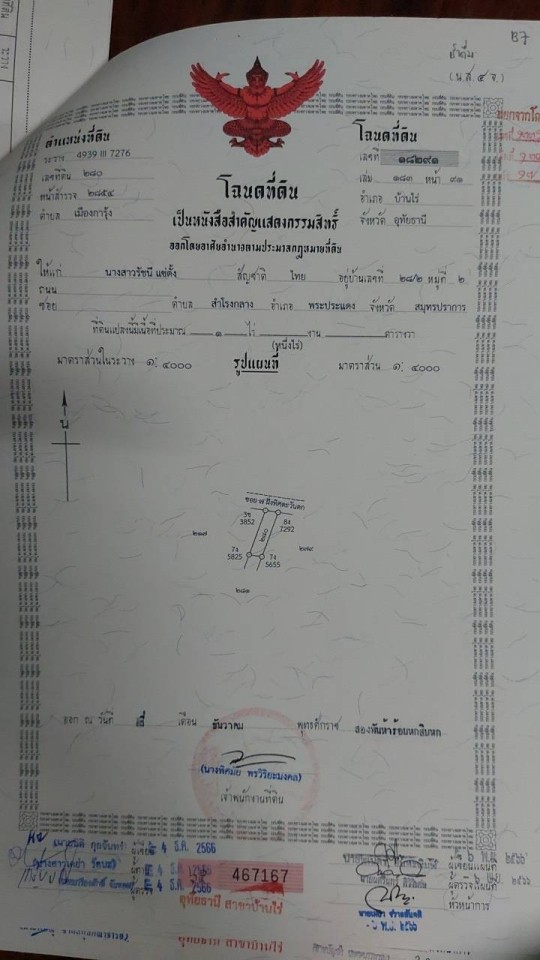 B7
(น.ส.๔ จ.)
ตำแหน่งที่ดิน
ระวาง 4939 III 7276
เลขที่ดิน ๒๘๐
หน้าสำรวจ ๒๘๕๔
ตำบล เมืองการุ้ง
โฉนดที่ดิน
เลขที่ ๑๘๒๙๑
เล่ม ๑๘๓ หน้า ๙๑
อำเภอ บ้านไร่
จังหวัด อุทัยธานี
โฉนดที่ดิน
เป็นหนังสือสำคัญแสดงกรรมสิทธิ์
ออกโดยอาศัยอำนาจตามประมวลกฎหมายที่ดิน
ให้แก่ นางสาวรัชนี แซ่ตั้ง สัญชาติ ไทย อยู่บ้านเลขที่ ๒๘/๒ หมู่ที่ ๒
ถนน
ซอย ตำบล สำโรงกลาง อำเภอ พระประแดง จังหวัด สมุทรปราการ
ที่ดินแปลงนี้มีเนื้อที่ประมาณ ๑ ไร่ งาน ตารางวา
(หนึ่งไร่)
มาตราส่วนในระวาง ๑: ๔๐๐๐ รูปแผนที่ มาตราส่วน ๑: ๔๐๐๐
น
ซอย ๗ ฝั่งทิศตะวันตก
3ข 3852
8ง 7292
๒๘๐
๒๑๗
๒๗๙
7ง 5825
7ง 5655
๒๘๑
ออก ณ วันที่ สี่ เดือน ธันวาคม พุทธศักราช สองพันห้าร้อยหกสิบหก
(นางพิศมัย พรวิริยะมงคล)
เจ้าพนักงานที่ดิน
4 ธ.ค. 2566
4 ธ.ค. 2566
4 ธ.ค. 2566
467167
อุทัยธานี สาขาบ้านไร่
อุทัยธานี สาขาบ้านไร่
ผู้เขียนแผนที่
ผู้ตรวจแผนที่
หัวหน้าการ